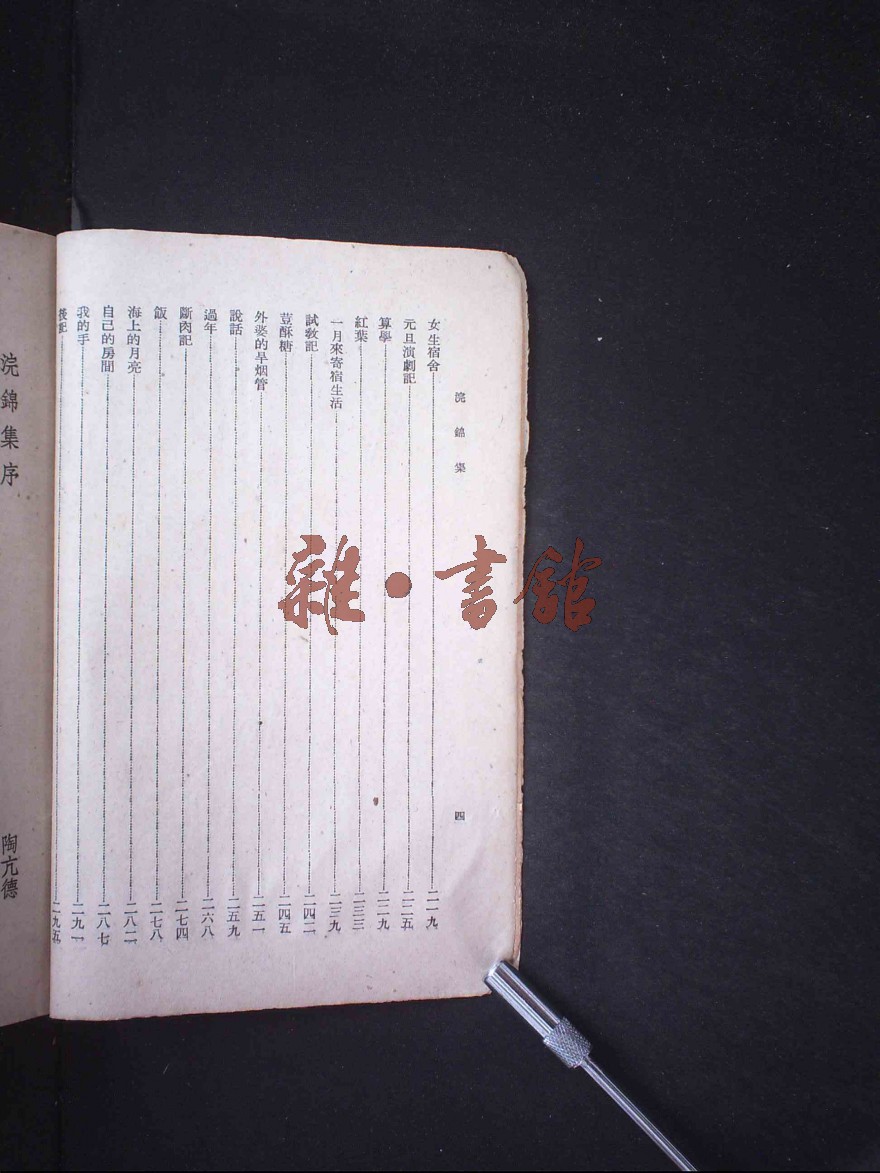 浣錦集
四
女生宿舍 二一九
元旦演劇記 二二五
算學 二二九
紅葉 二三三
一月來寄宿生活 二三九
試教記 二四二
荳酥糖 二四五
外婆的旱烟管 二五一
說話 二五九
過年 二六八
斷肉記 二七四
飯 二七八
海上的月亮 二八二
自己的房間 二八七
我的手 二九一
後記 二九五
浣錦集序
陶亢德
雜·書館